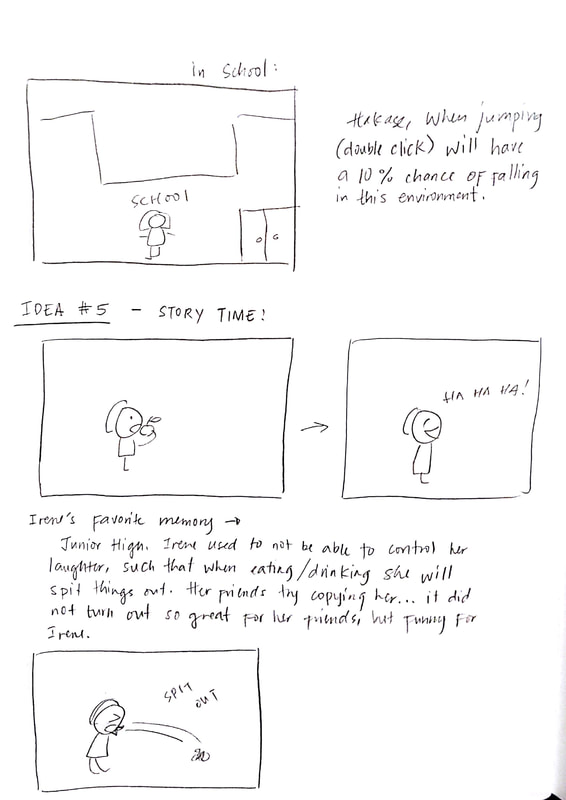 in school:
Hakase, when jumping
(double click) will have
a 10% chance of falling
in this environment.
SCHOOL
IDEA #5 - STORY TIME!
HA HA HA!
Irene's favorite memory →
Junior High. Irene used to not be able to control her
laughter, such that when eating/drinking she will
spit things out. Her friends try copying her... it did
not turn out so great for her friends, but funny for
Irene.
SPIT
OUT